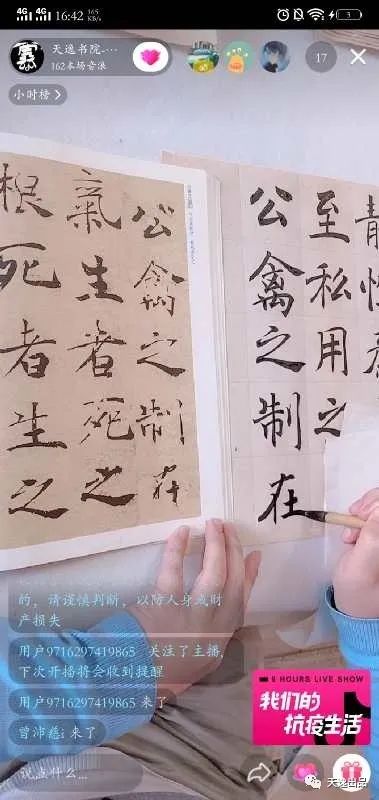 16:42 165 KB/s 3
天逸书院....
162本场音浪
17
小时榜 >
根死者生之
氣生者死之
公禽之制在
公禽之制在
至私用之
青性
的，请谨慎判断，以防人身或财
产损失
用户9716297419865 关注了主播，
下次开播将会收到提醒
用户9716297419865 来了
曾沛慈i 来了
说点什么...
8 HOURS LIVE SHOW
我们的
抗疫生活
天逸出品